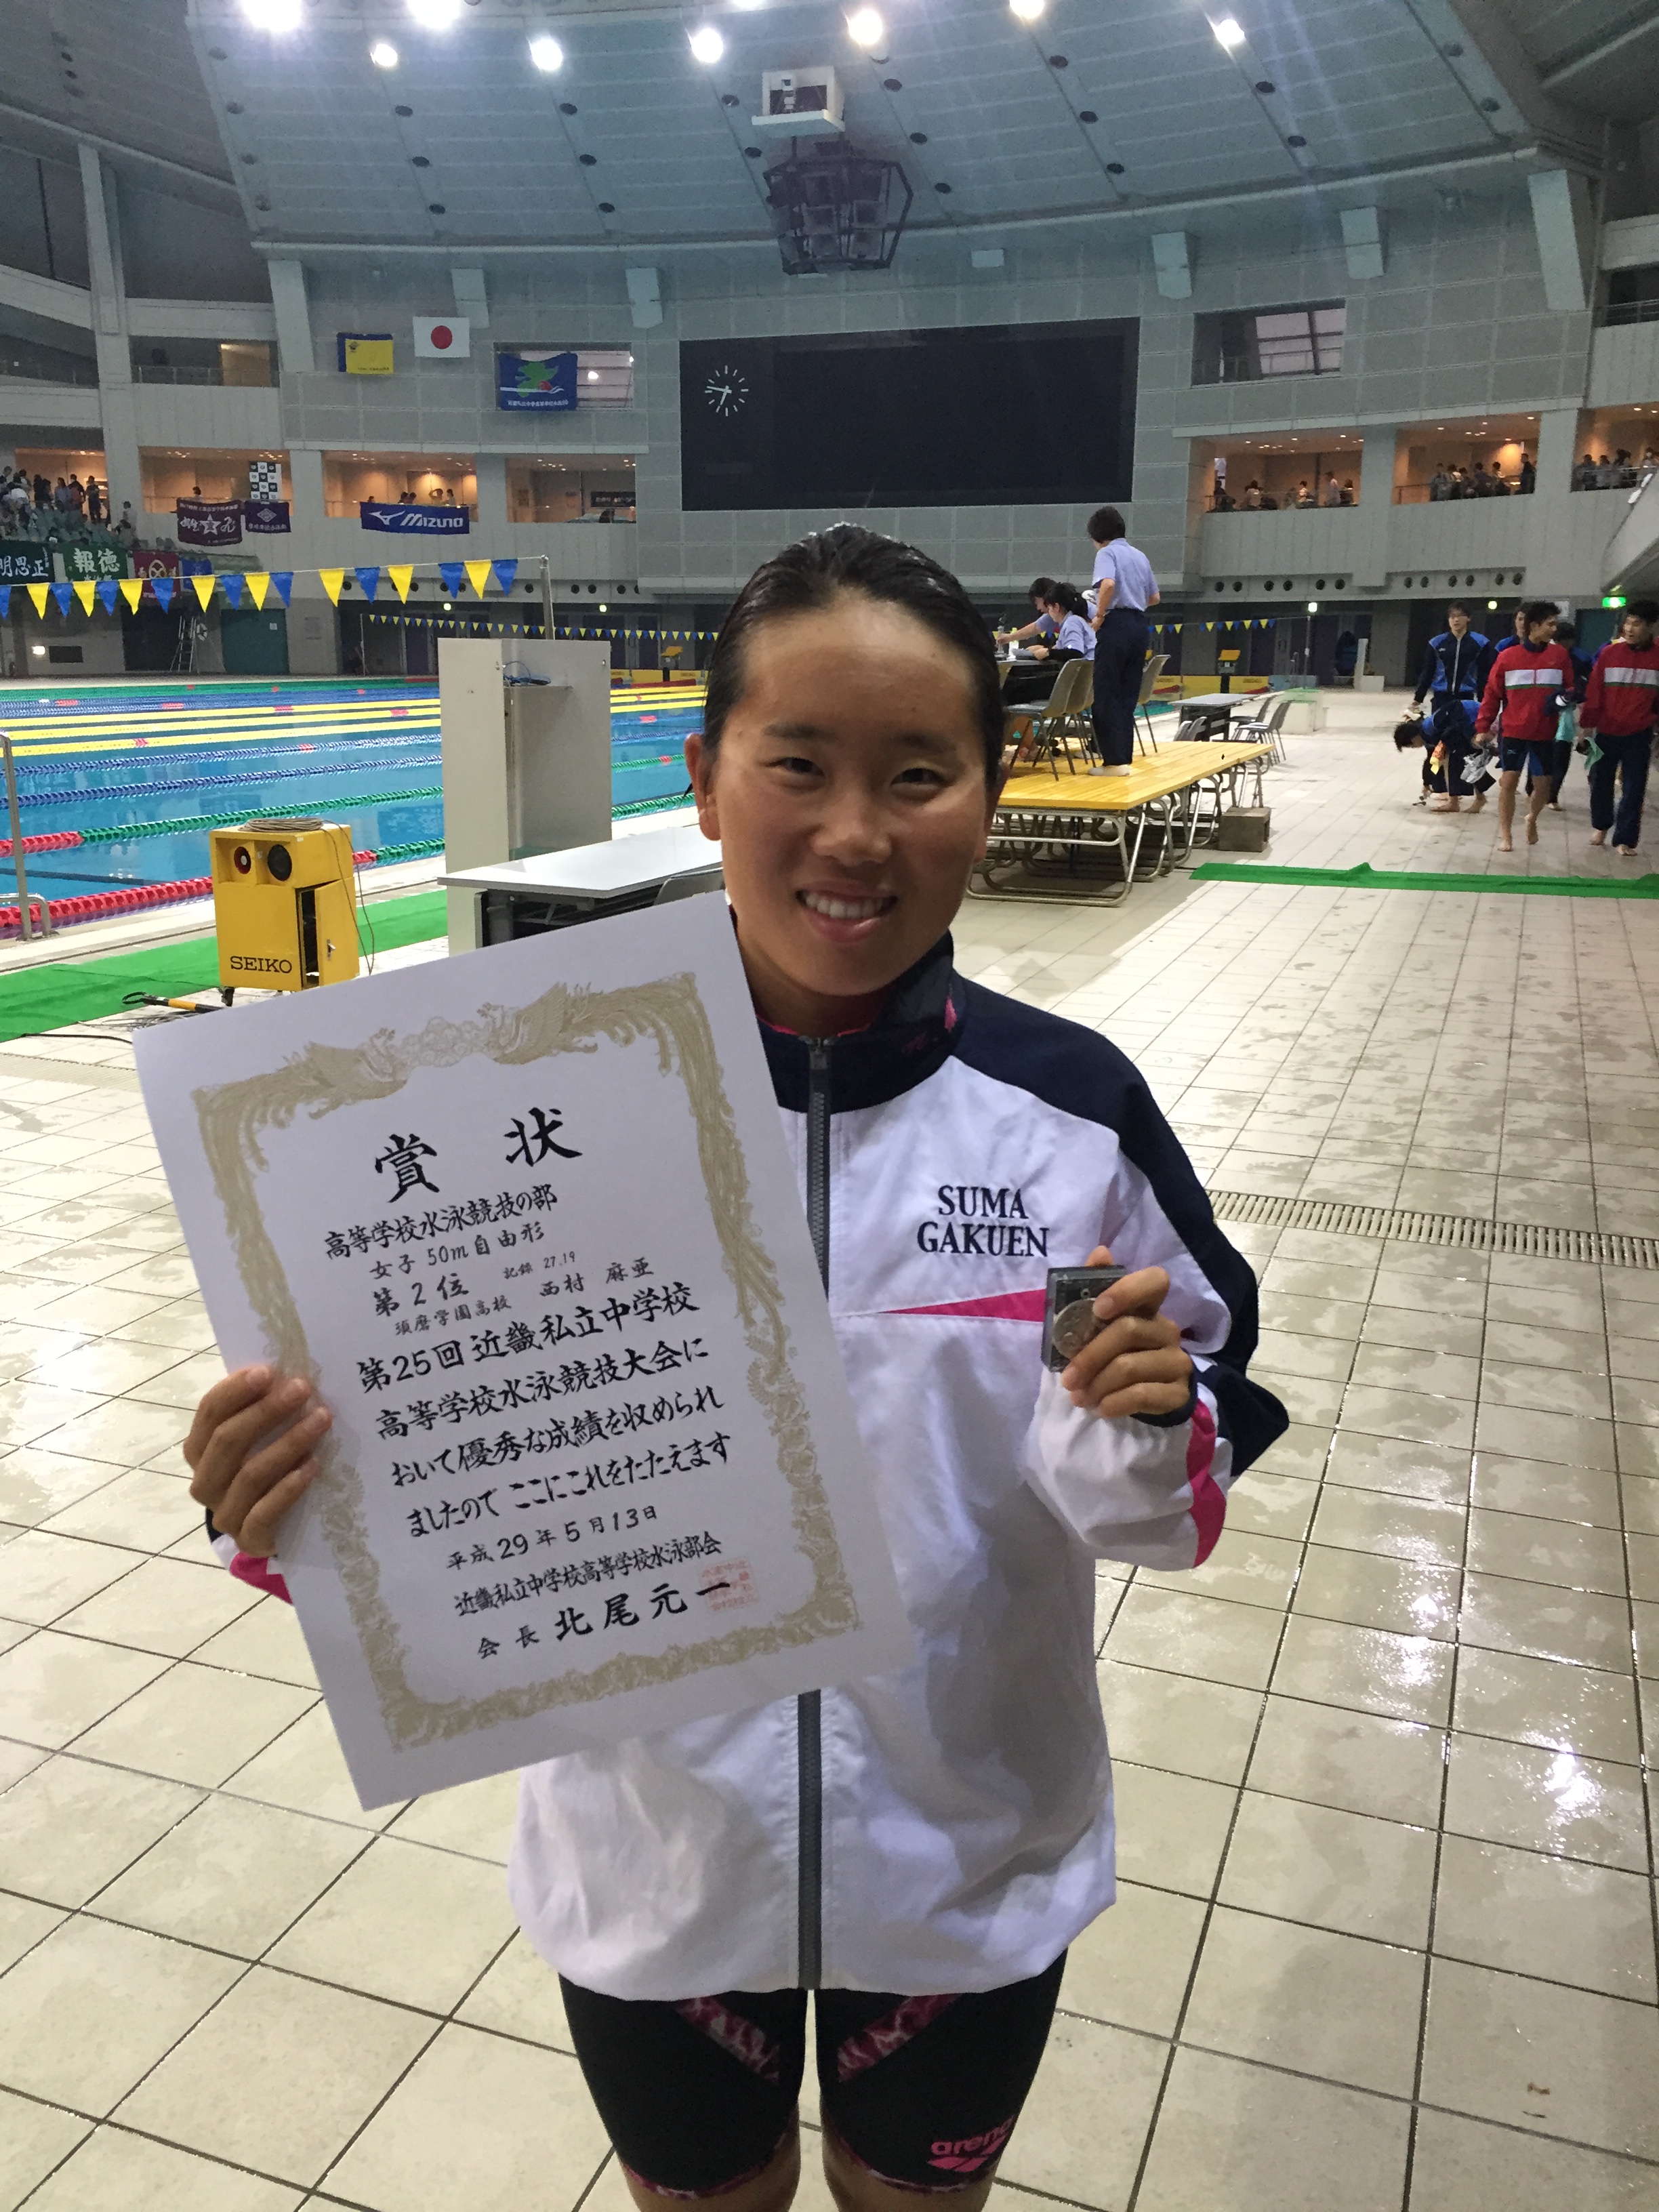 MIZUNO
明思正
報徳
SEIKO
SUMA
GAKUEN
賞状
高等学校水泳競技の部
女子 50m自由形
第2位 記録 27.19
須磨学園高校 西村 麻亜
第25回近畿私立中学校
高等学校水泳競技大会に
おいて優秀な成績を収められ
ましたので ここにこれをたたえます
平成29年5月13日
近畿私立中学校高等学校水泳部会
会長 北尾元一
arena